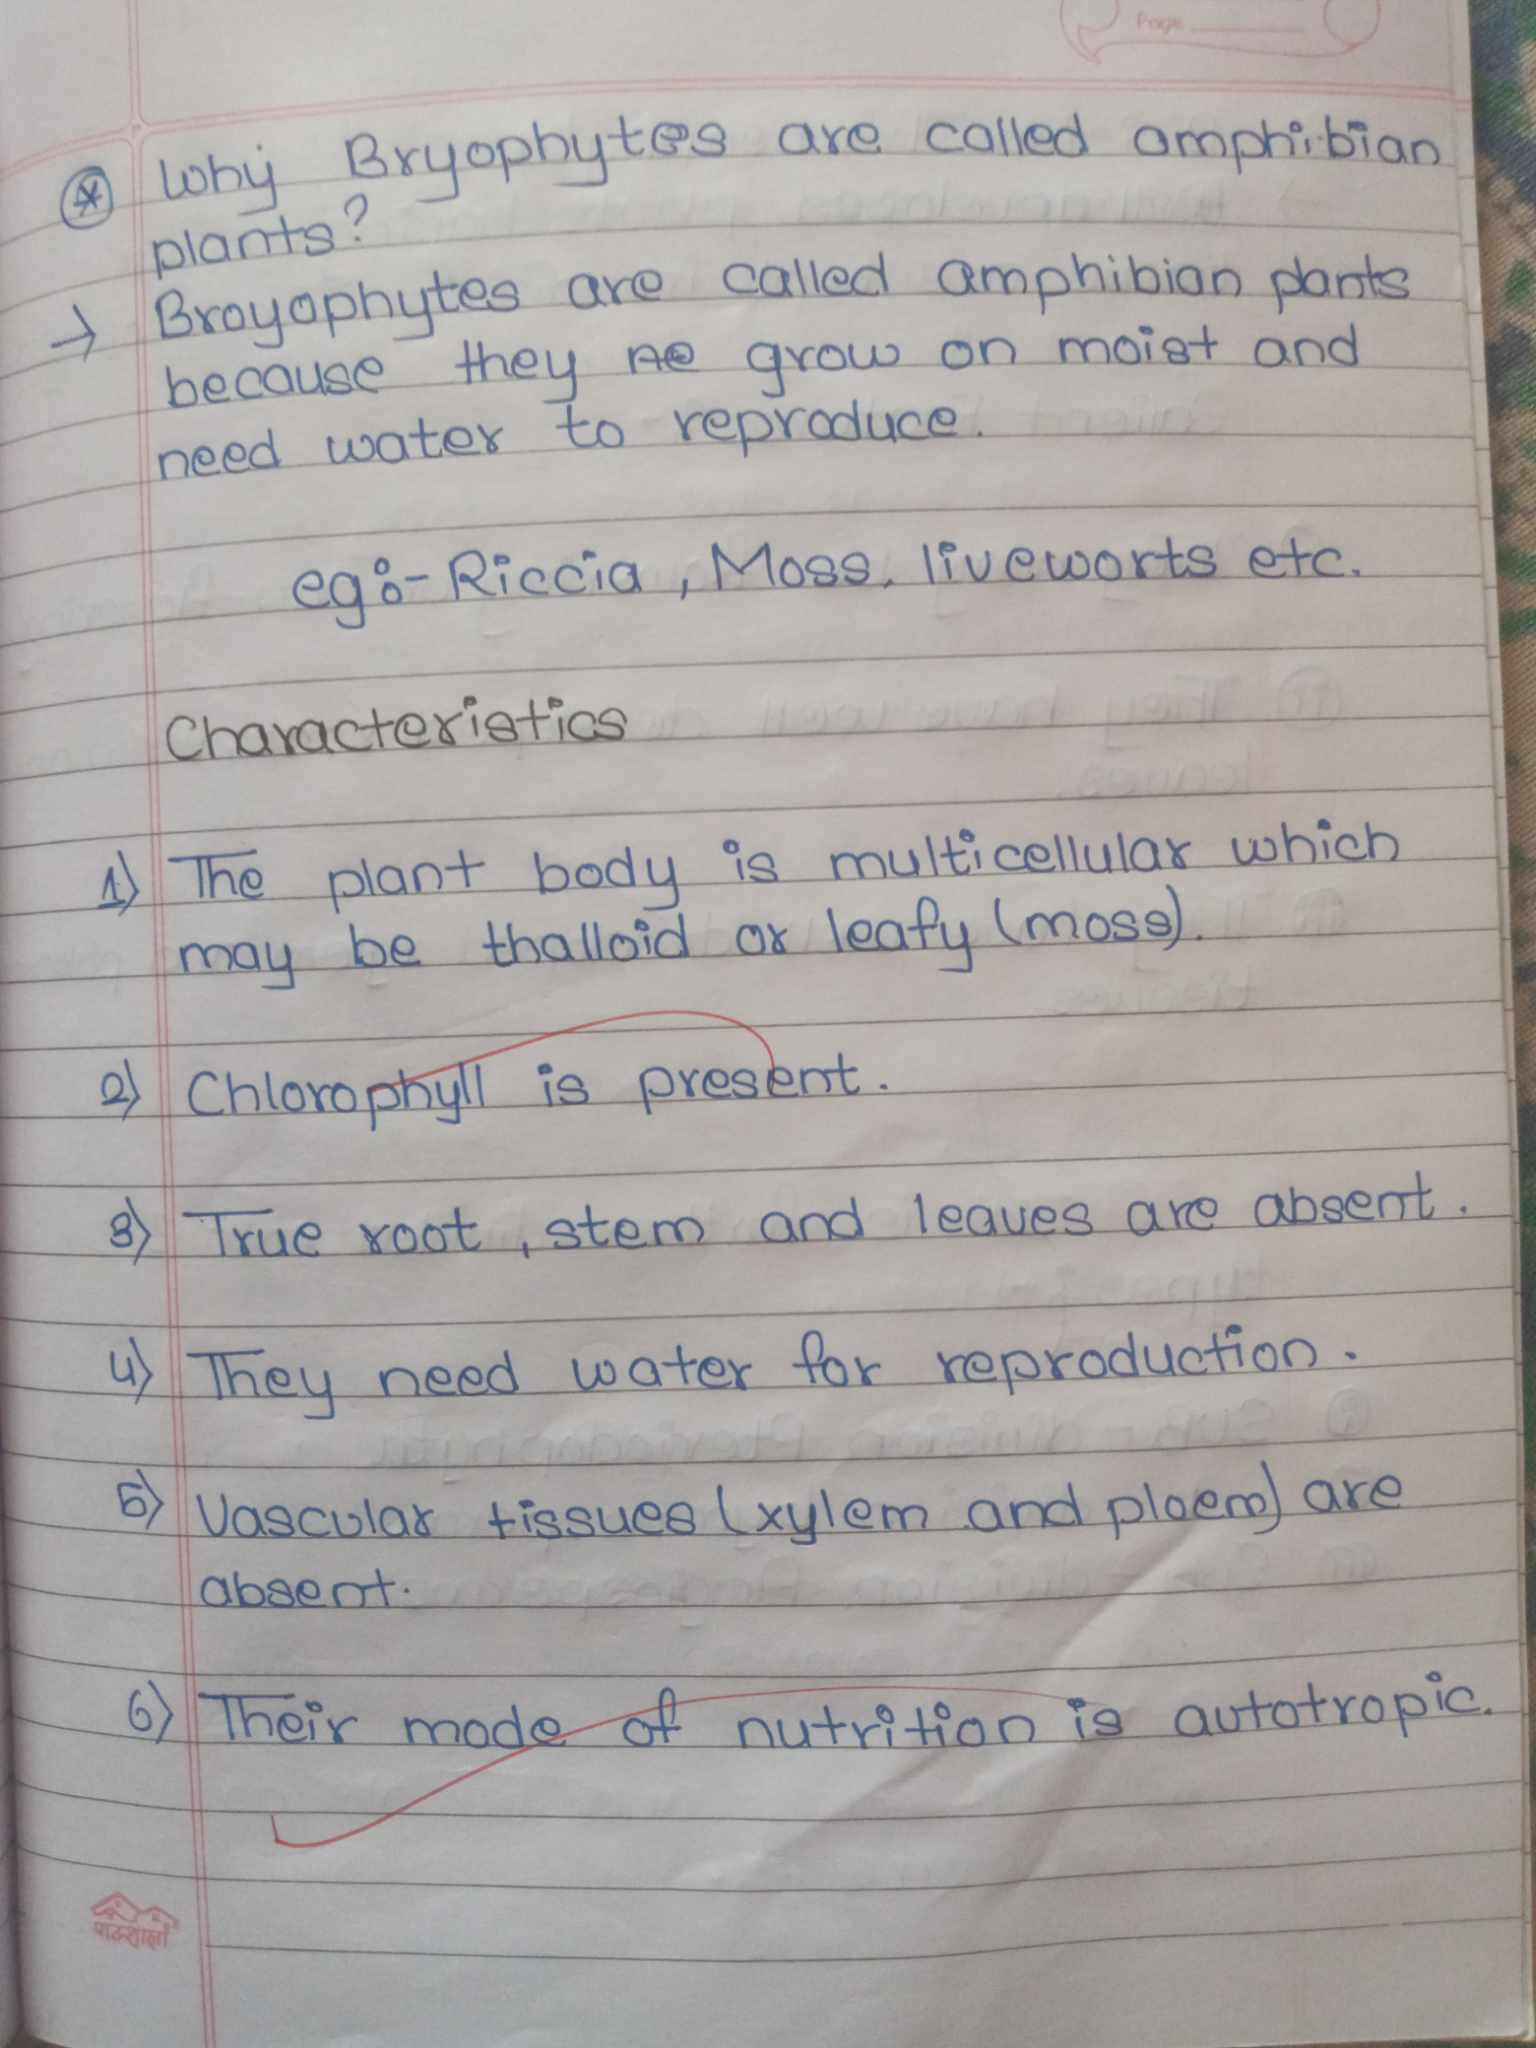 Page
⊛ Why Bryophytes are called amphibian
plants?
→ Broyophytes are called amphibian plants
because they ne grow on moist and
need water to reproduce.
eg:- Riccia, Moss, liveworts etc.
Characteristics
1) The plant body is multicellular which
may be thalloid or leafy (moss).
2) Chlorophyll is present.
3) True root, stem and leaves are absent.
4) They need water for reproduction.
5) Vascular tissues (xylem and ploem) are
absent.
6) Their mode of nutrition is autotropic.
पाठशाला